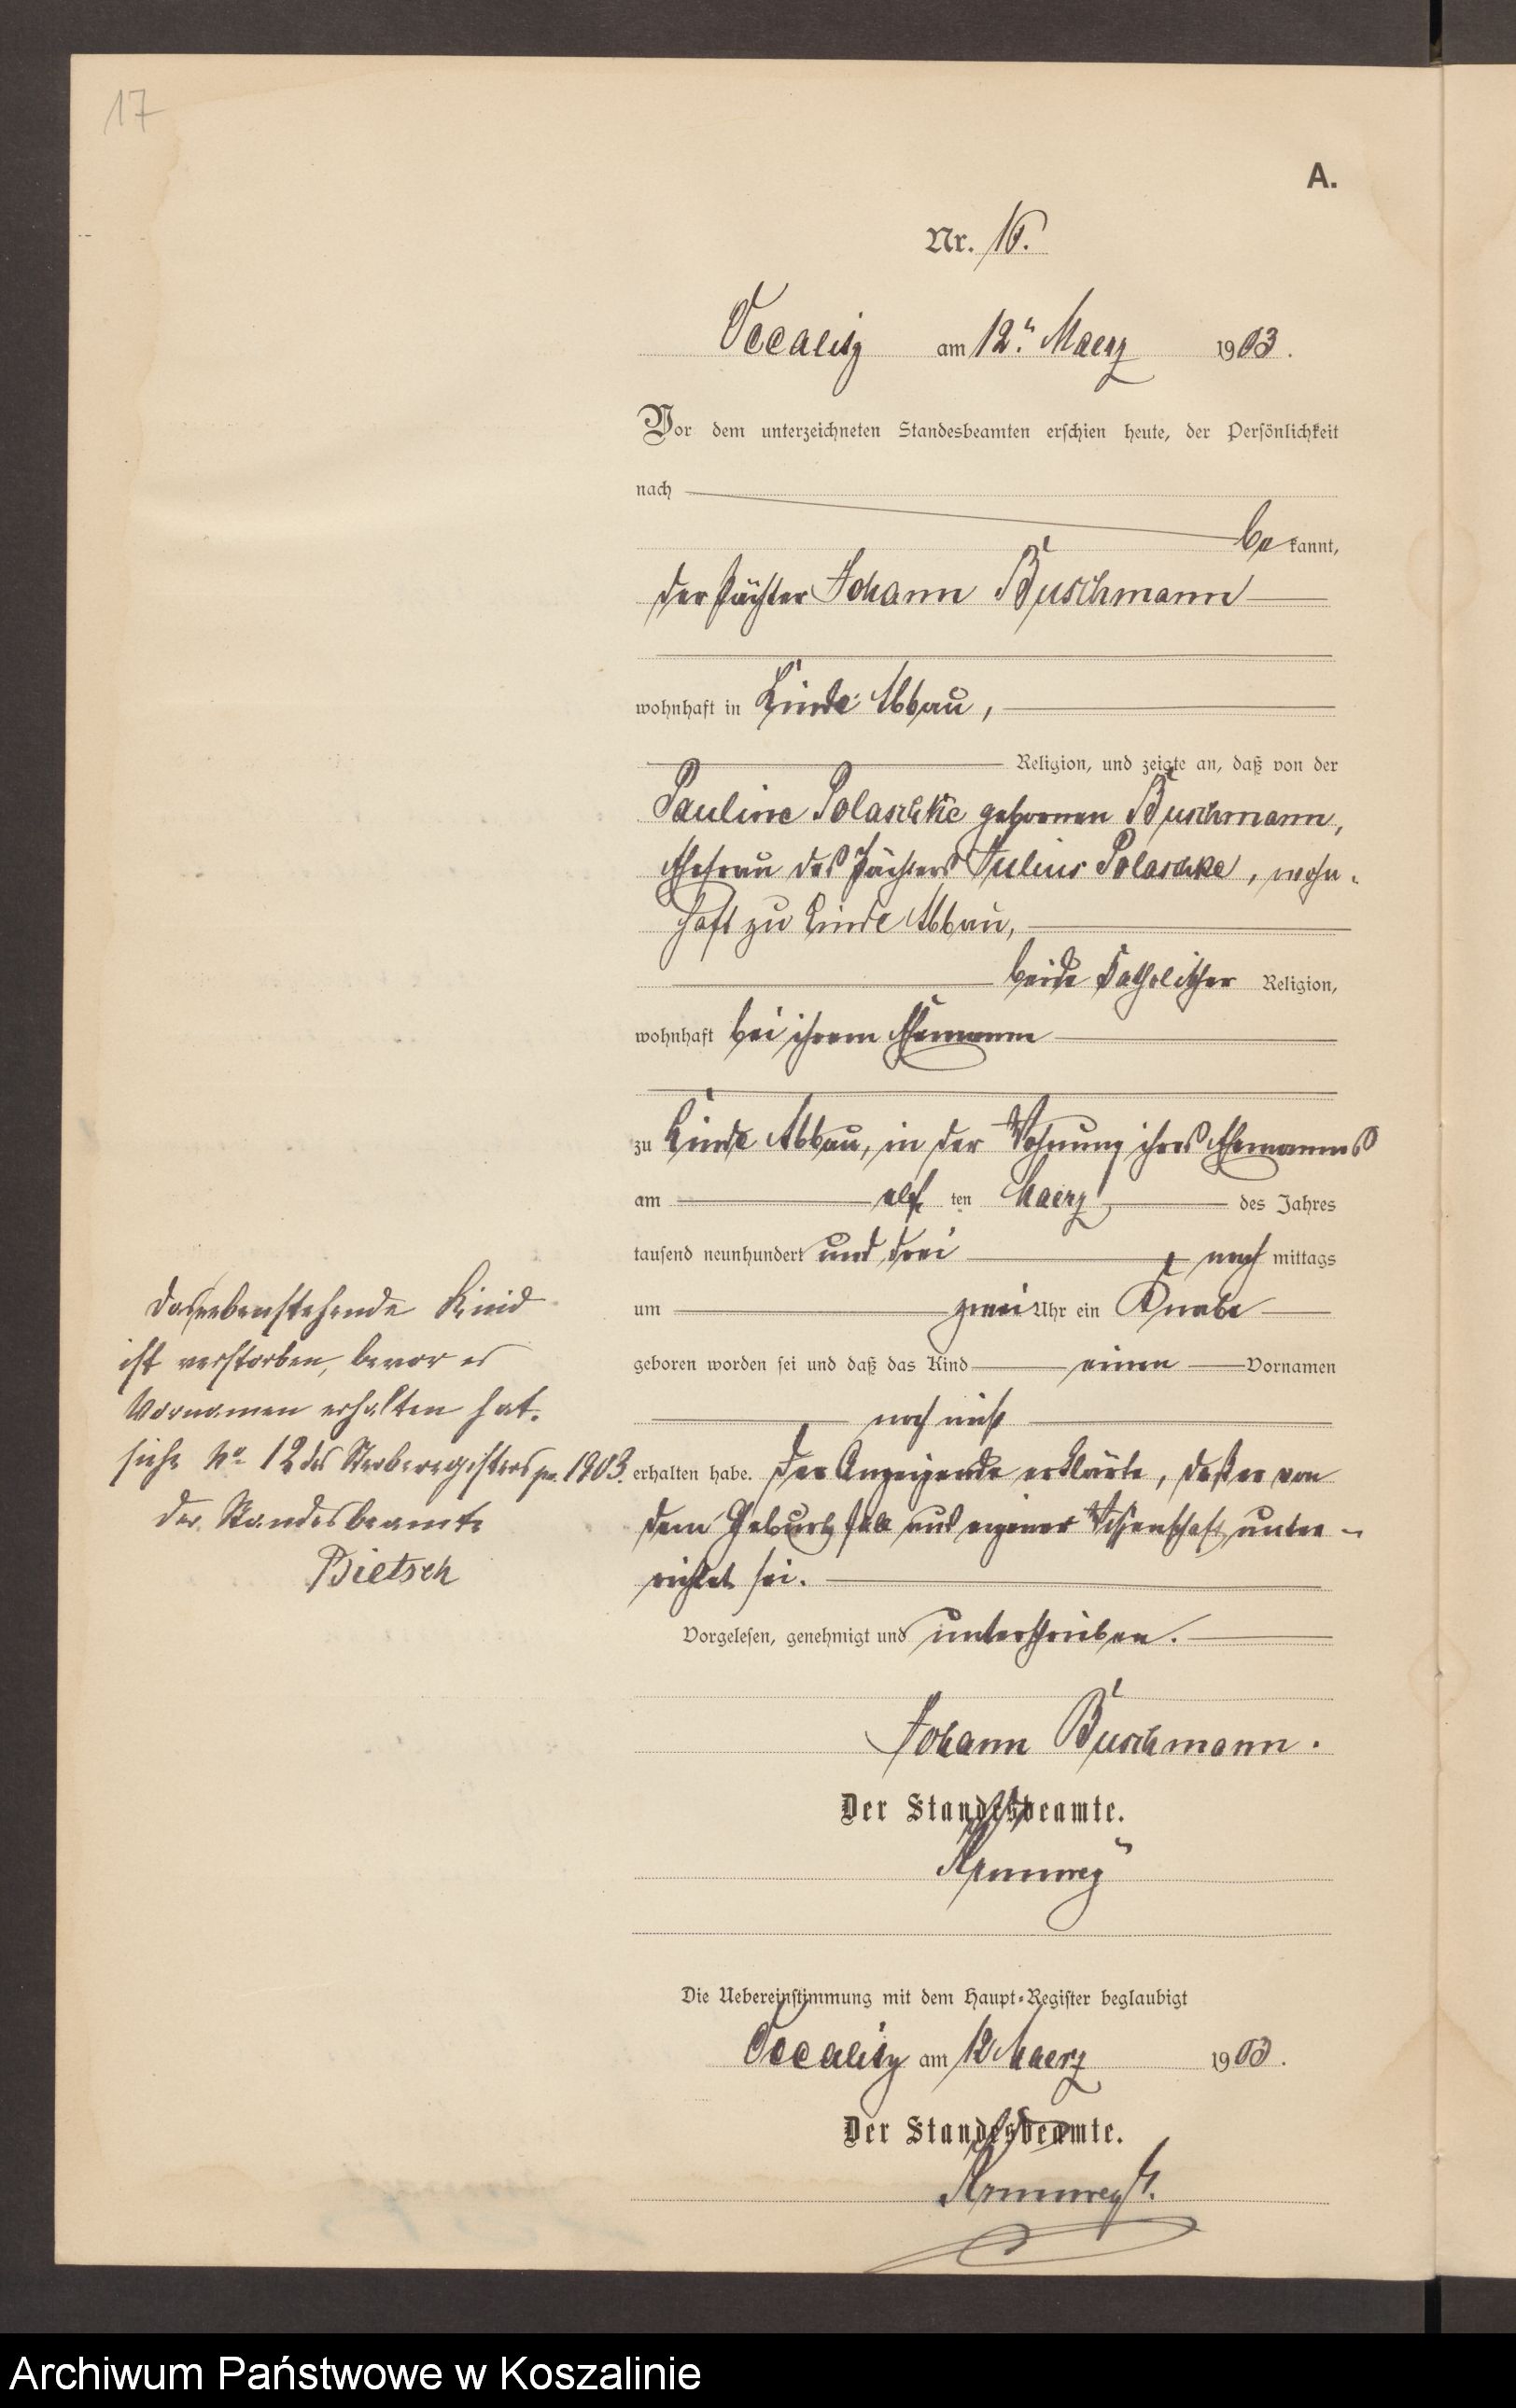 17
A.
Nr. 16.
Occalitz am 12.ⁿ Maerz 1903.
Vor dem unterzeichneten Standesbeamten erschien heute, der Persönlichkeit
nach
be kannt,
der Pächter Johann Buschmann
wohnhaft in Linde Abbau,
Religion, und zeigte an, daß von der
Pauline Polaschke gebornen Buschmann,
Ehefrau des Pächters Julius Polaschke, wohn-
haft zu Linde Abbau,
beide katholischer Religion,
wohnhaft bei ihrem Ehemann
zu Linde Abbau, in der Wohnung ihres Ehemannes
am elf ten Maerz des Jahres
tausend neunhundert und drei, nach mittags
um zwei Uhr ein Knabe
geboren worden sei und daß das Kind einen Vornamen
noch nicht
erhalten habe. Der Anzeigende erklärte, daß er von
dem Geburtsfall aus eigener Wissenschaft unter-
richtet sei.
Vorgelesen, genehmigt und unterschrieben.
Johann Buschmann.
Der Standesbeamte.
Die Uebereinstimmung mit dem Haupt-Register beglaubigt
Occalitz am 12 Maerz 1903.
Der Standesbeamte.
Das nebenstehende Kind
ist verstorben, bevor es
Vornamen erhalten hat.
siehe No 12 des Sterberegisters pro 1903.
Der Standesbeamte
Bietsch
Archiwum Państwowe w Koszalinie